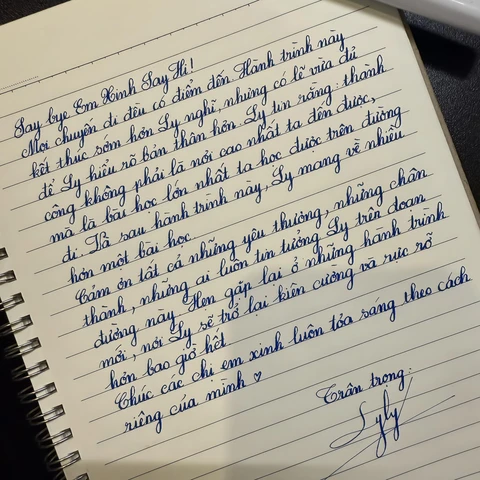 Say bye Em Xinh Say Hi!
Mọi chuyến đi đều có điểm đến. Hành trình này
kết thúc sớm hơn Ly nghĩ, nhưng có lẽ vừa đủ
để Ly hiểu rõ bản thân hơn. Ly tin rằng: thành
công không phải là nơi cao nhất ta đến được,
mà là bài học lớn nhất ta học được trên đường
đi. Và sau hành trình này, Ly mang về nhiều
hơn một bài học.
Cảm ơn tất cả những yêu thương, những chân
thành, những ai luôn tin tưởng Ly trên đoạn
đường này. Hẹn gặp lại ở những hành trình
mới, nơi Ly sẽ trở lại kiên cường và rực rỡ
hơn bao giờ hết.
Chúc các chị em xinh luôn tỏa sáng theo cách
riêng của mình ♡
Trân trọng:
Lyly